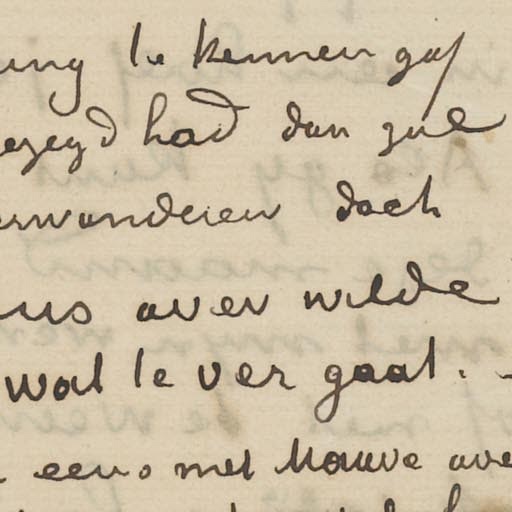 te kennen gaf
had dan zul
verwonderen doch
over wilde
wat te ver gaat.
eens met Mauve ove